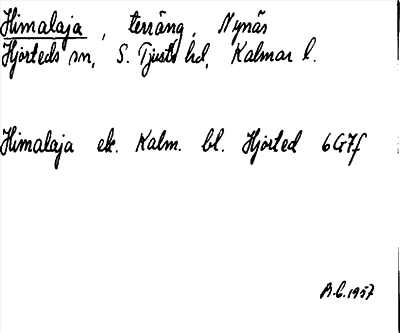 Himalaja, terräng, Nynäs
Hjorteds sn, S. Tjusts hd, Kalmar l.
Himalaja ek. Kalm. bl. Hjorted 6G7f
A.b. 1957